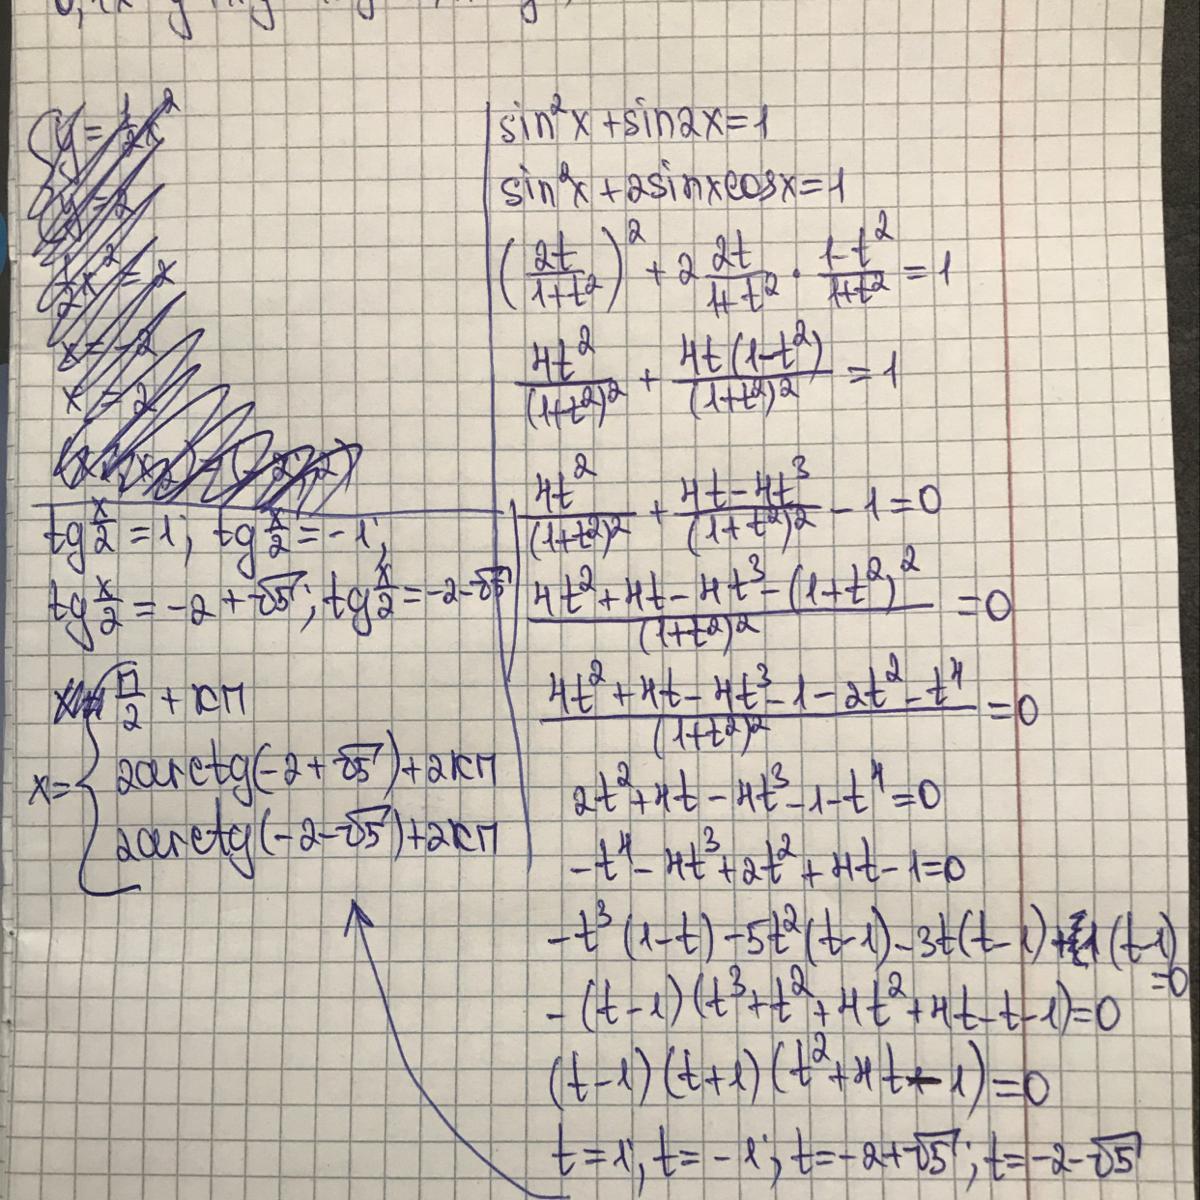 sin²x + sin2x = 1
sin²x + 2sinxcosx = 1
(2t/(1+t²))² + 2 2t/(1+t²) · (1-t²)/(1+t²) = 1
4t²/(1+t²)² + 4t(1-t²)/(1+t²)² = 1
4t²/(1+t²)² + (4t-4t³)/(1+t²)² - 1 = 0
(4t²+4t-4t³-(1+t²)²)/(1+t²)² = 0
(4t²+4t-4t³-1-2t²-t⁴)/(1+t²)² = 0
2t²+4t-4t³-1-t⁴=0
-t⁴-4t³+2t²+4t-1=0
-t³(1-t)-5t²(t-1)-3t(t-1)+1(t-1)=0
-(t-1)(t³+t²+4t²+4t-t-1)=0
(t-1)(t+1)(t²+4t-1)=0
t=1; t=-1; t=-2+√5; t=-2-√5
tg x/2 = 1; tg x/2 = -1;
tg x/2 = -2+√5; tg x/2 = -2-√5
x = { π/2 + кπ
2arctg(-2+√5)+2кπ
2arctg(-2-√5)+2кπ